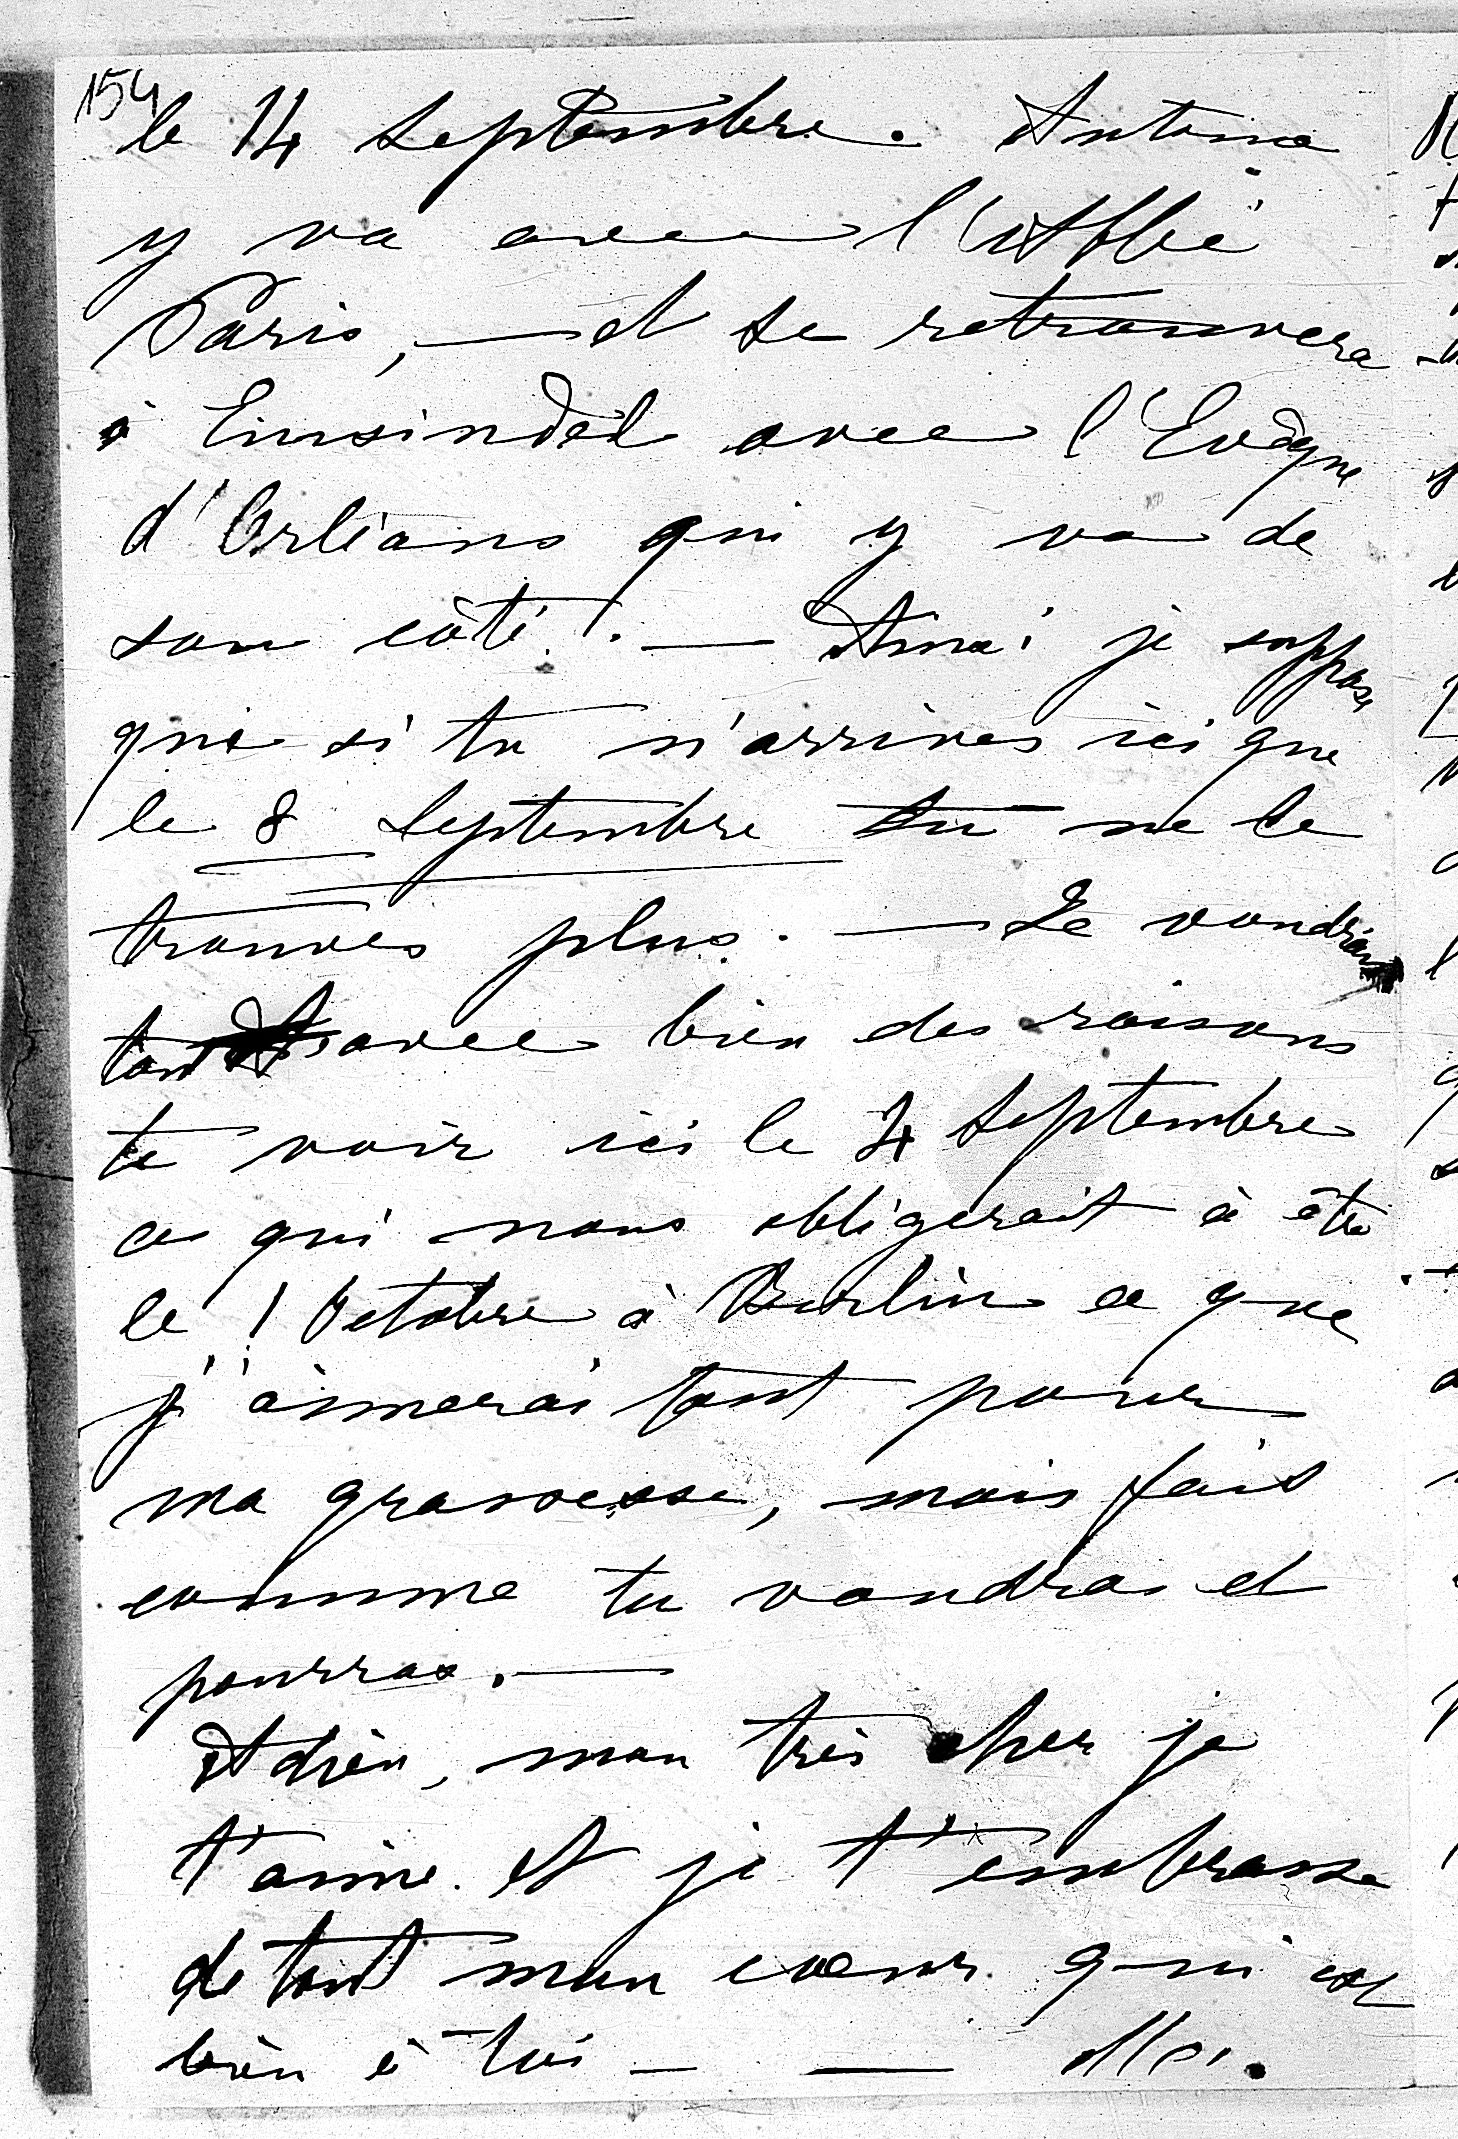 154
le 14 Septembre. Antoine
y va avec l'Abbé
Paris, — et se retrouvera
à Einsindel avec l'Evêque
d'Orléans qui y va de
son côté. — Ainsi je suppose
que si tu n'arrives ici que
le 8 Septembre tu ne le
trouves plus. — Je voudrais
tant avec bien des raisons
te voir ici le 4 Septembre
ce qui nous obligerait à être
le 1 Octobre à Berlin ce que
j'aimerai tant pour
ma grossesse, mais fait
comme tu voudras et
pourras. —
Adieu, mon très cher je
t'aime et je t'embrasse
de tout mon cœur qui est
bien à toi — — M.